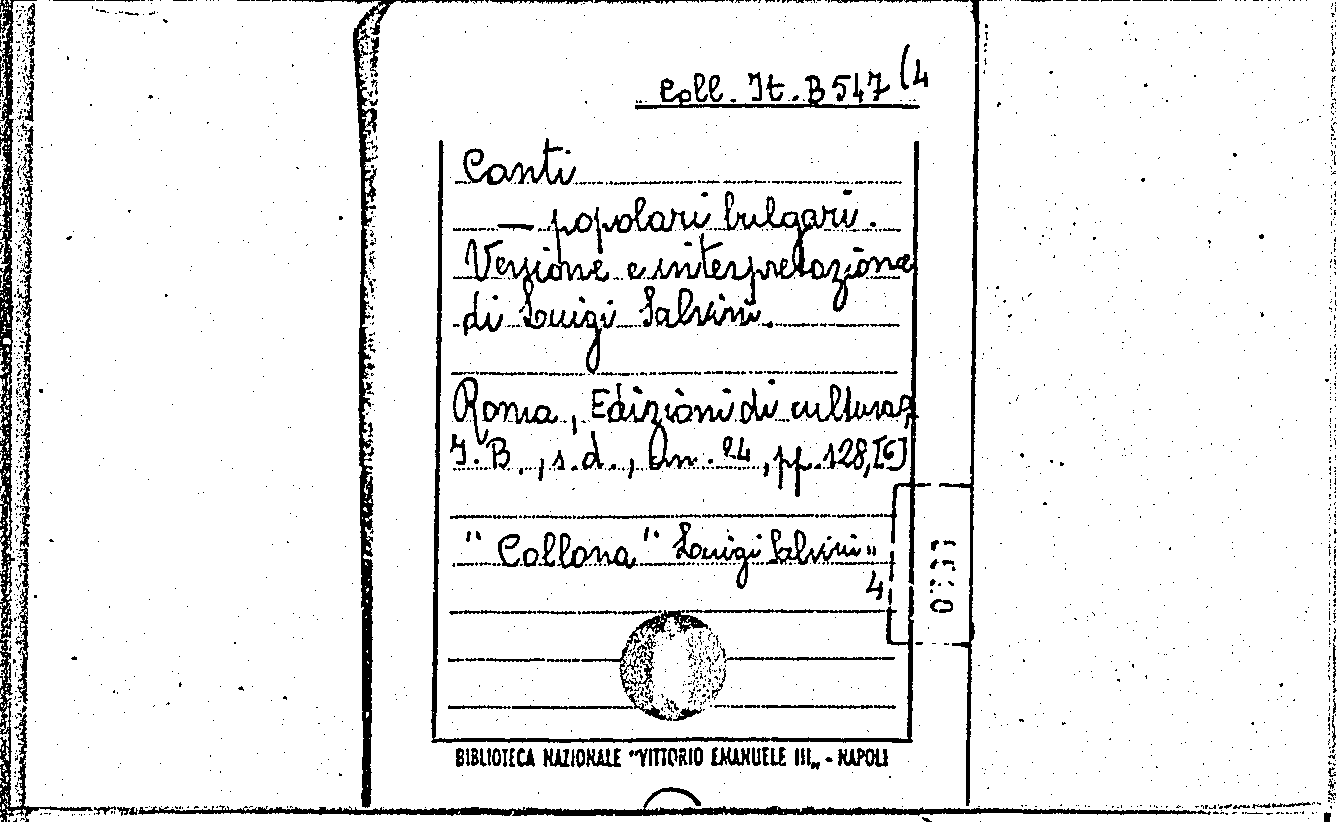 Coll. It. B 547 (4
Canti
— popolari bulgari.
Versione e interpretazione
di Luigi Salvini.
Roma, Edizioni di cultura,
I. B., s.d., in. 24, pp. 128, [6]
"Collana" Luigi Salvini„
4
BIBLIOTECA NAZIONALE "VITTORIO EMANUELE III„ - NAPOLI